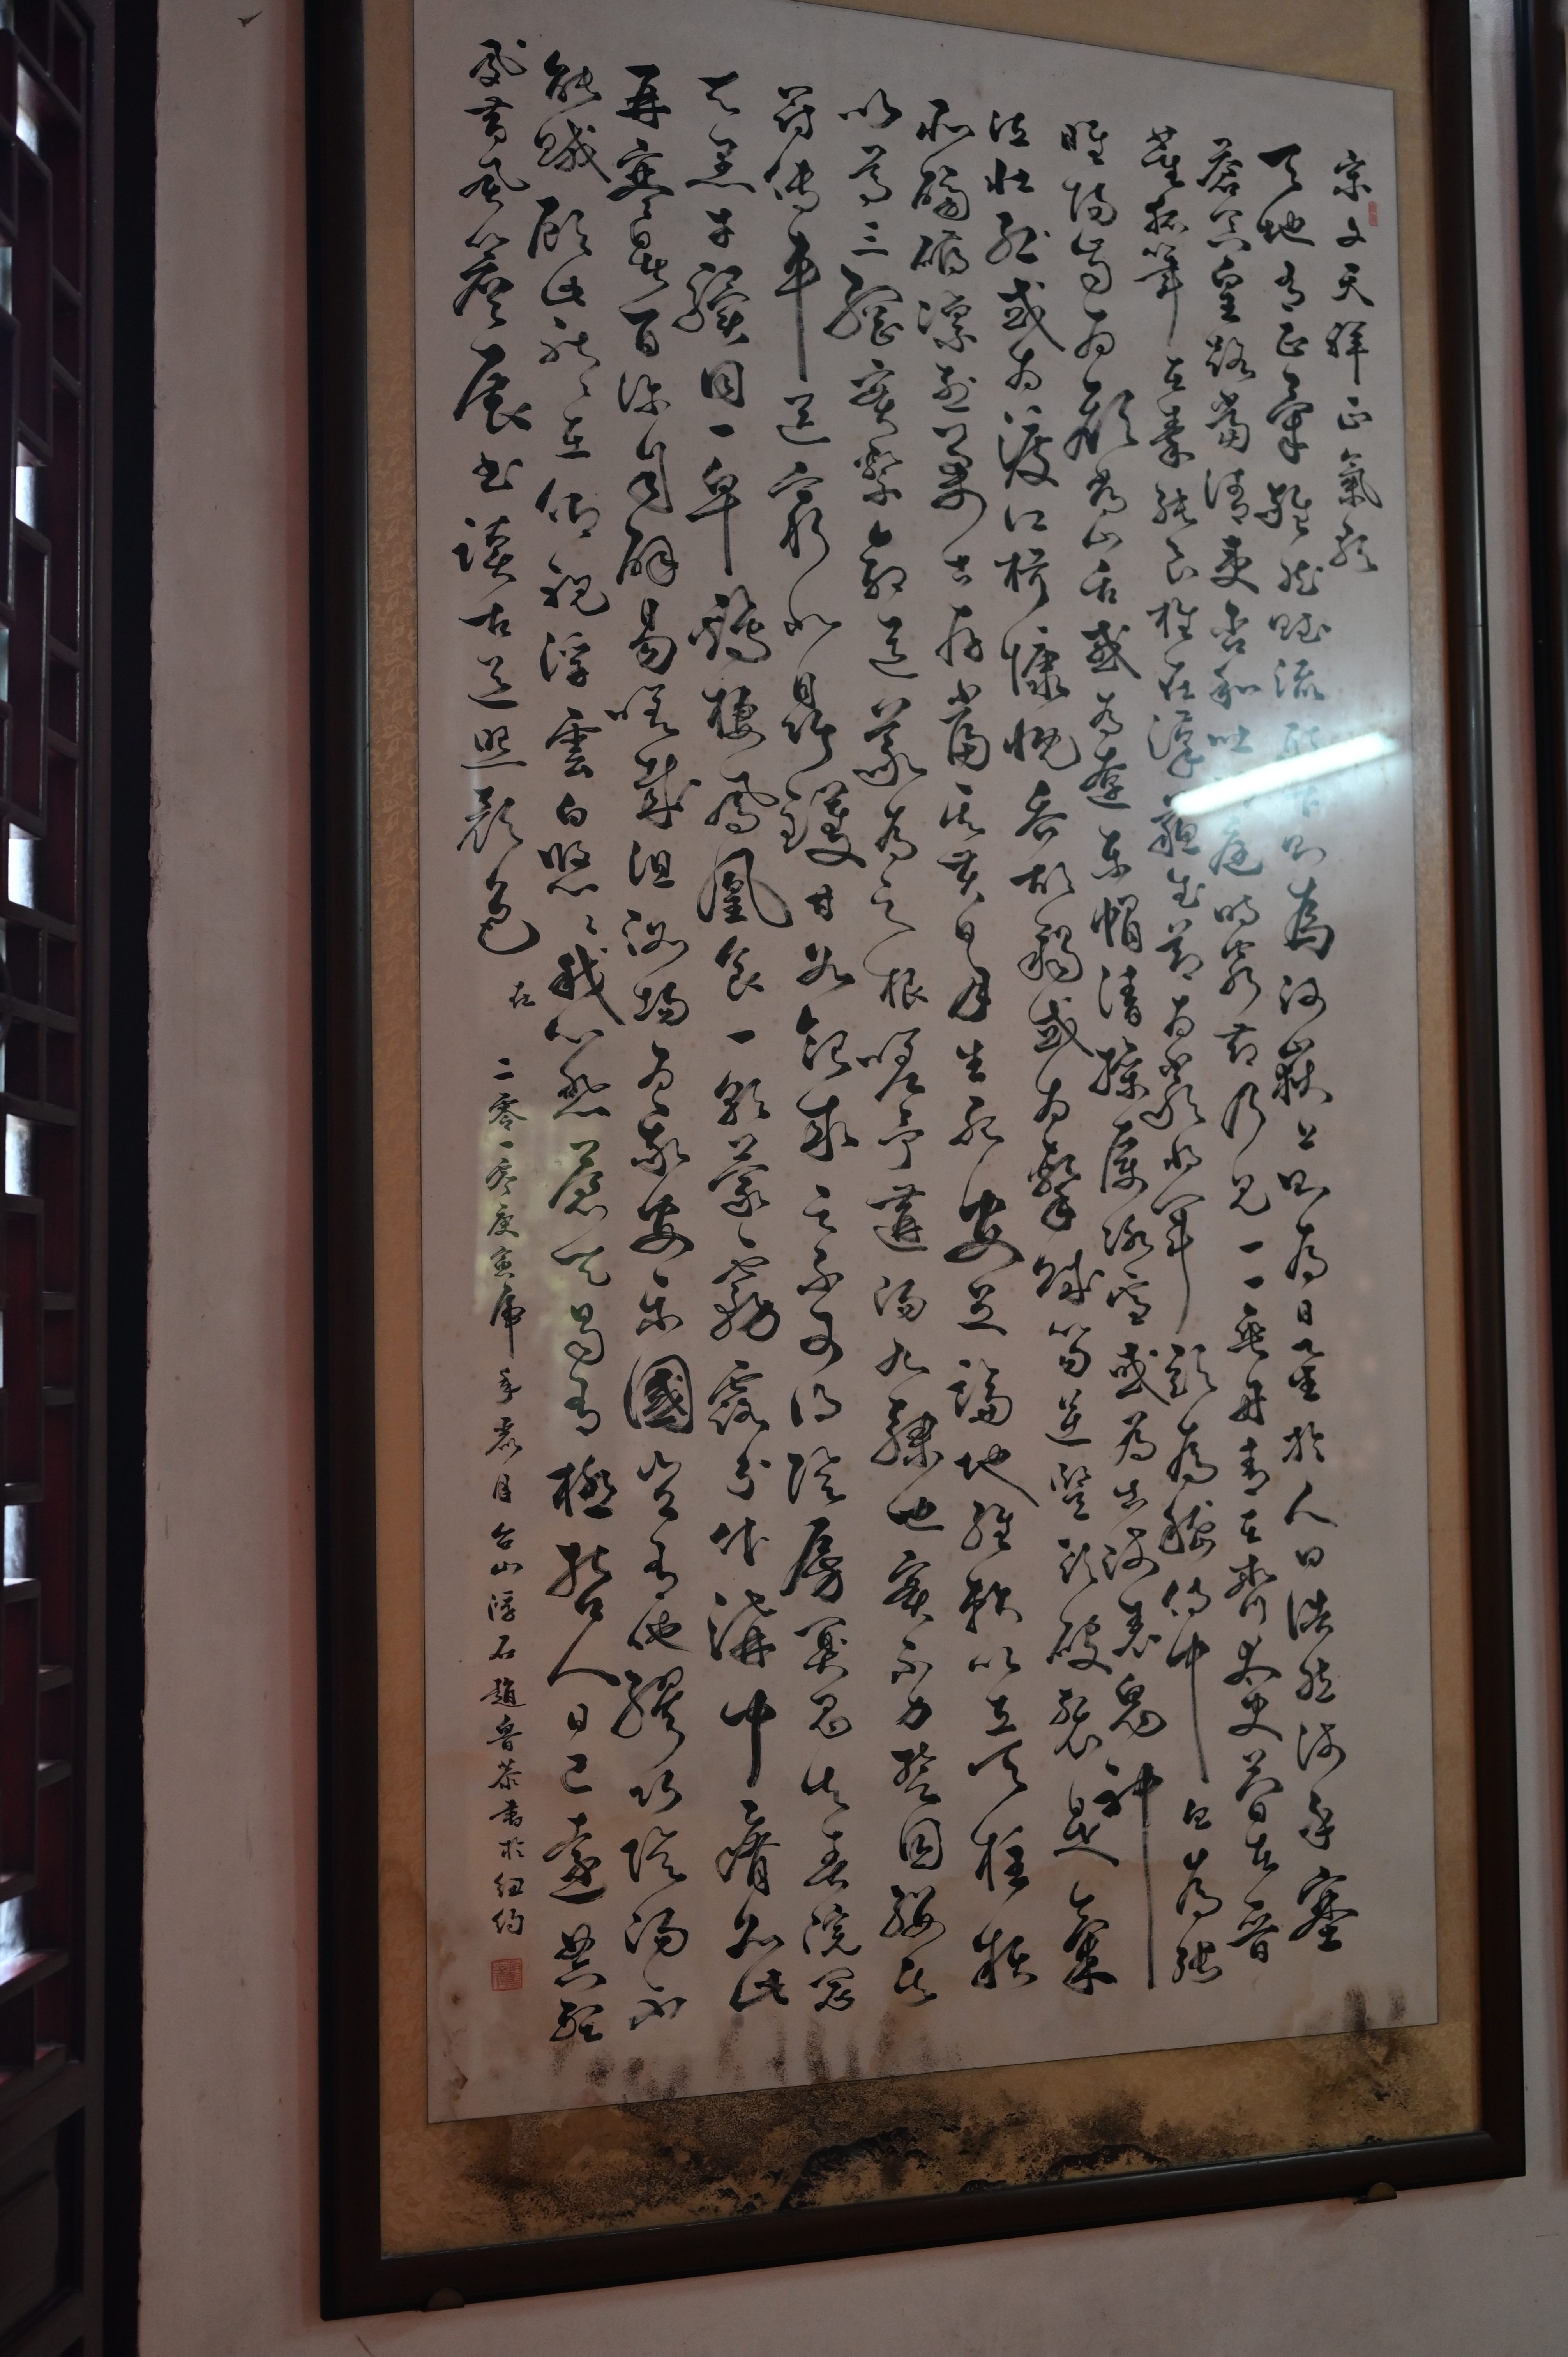 宋文天祥正氣歌
天地有正氣雜然賦流形下則為河嶽上則為日星於人曰浩然沛乎塞
蒼冥皇路當清夷含和吐明庭時窮節乃見一一垂丹青在齊太史簡在晉
董狐筆在秦張良椎在漢蘇武節為嚴將軍頭為嵇侍中血為張
睢陽齒為顏常山舌或為遼東帽清操厲冰雪或為出師表鬼神
泣壯烈或為渡江楫慷慨吞胡羯或為擊賊笏逆豎頭破裂是氣
所磅礴凜冽萬古存當其貫日月生死安足論地維賴以立天柱賴
以尊三綱實繫命道義為之根嗟予遘陽九隸也實不力楚囚纓其
冠傳車送窮北鼎鑊甘如飴求之不可得陰房闃鬼火春院閟
天黑牛驥同一皁鷄棲鳳凰食一朝蒙霧露分作溝中瘠如此
再寒暑百沴自辟易嗟哉沮洳場為我安樂國豈有他繆巧陰陽不
能賊顧此耿〻在仰視浮雲白悠〻我心悲蒼天曷有極哲人日已遠典型
夙昔風簷展書讀古道照顏色 在
二零一零庚寅虎年月台山浮石趙魯恭書於紐約